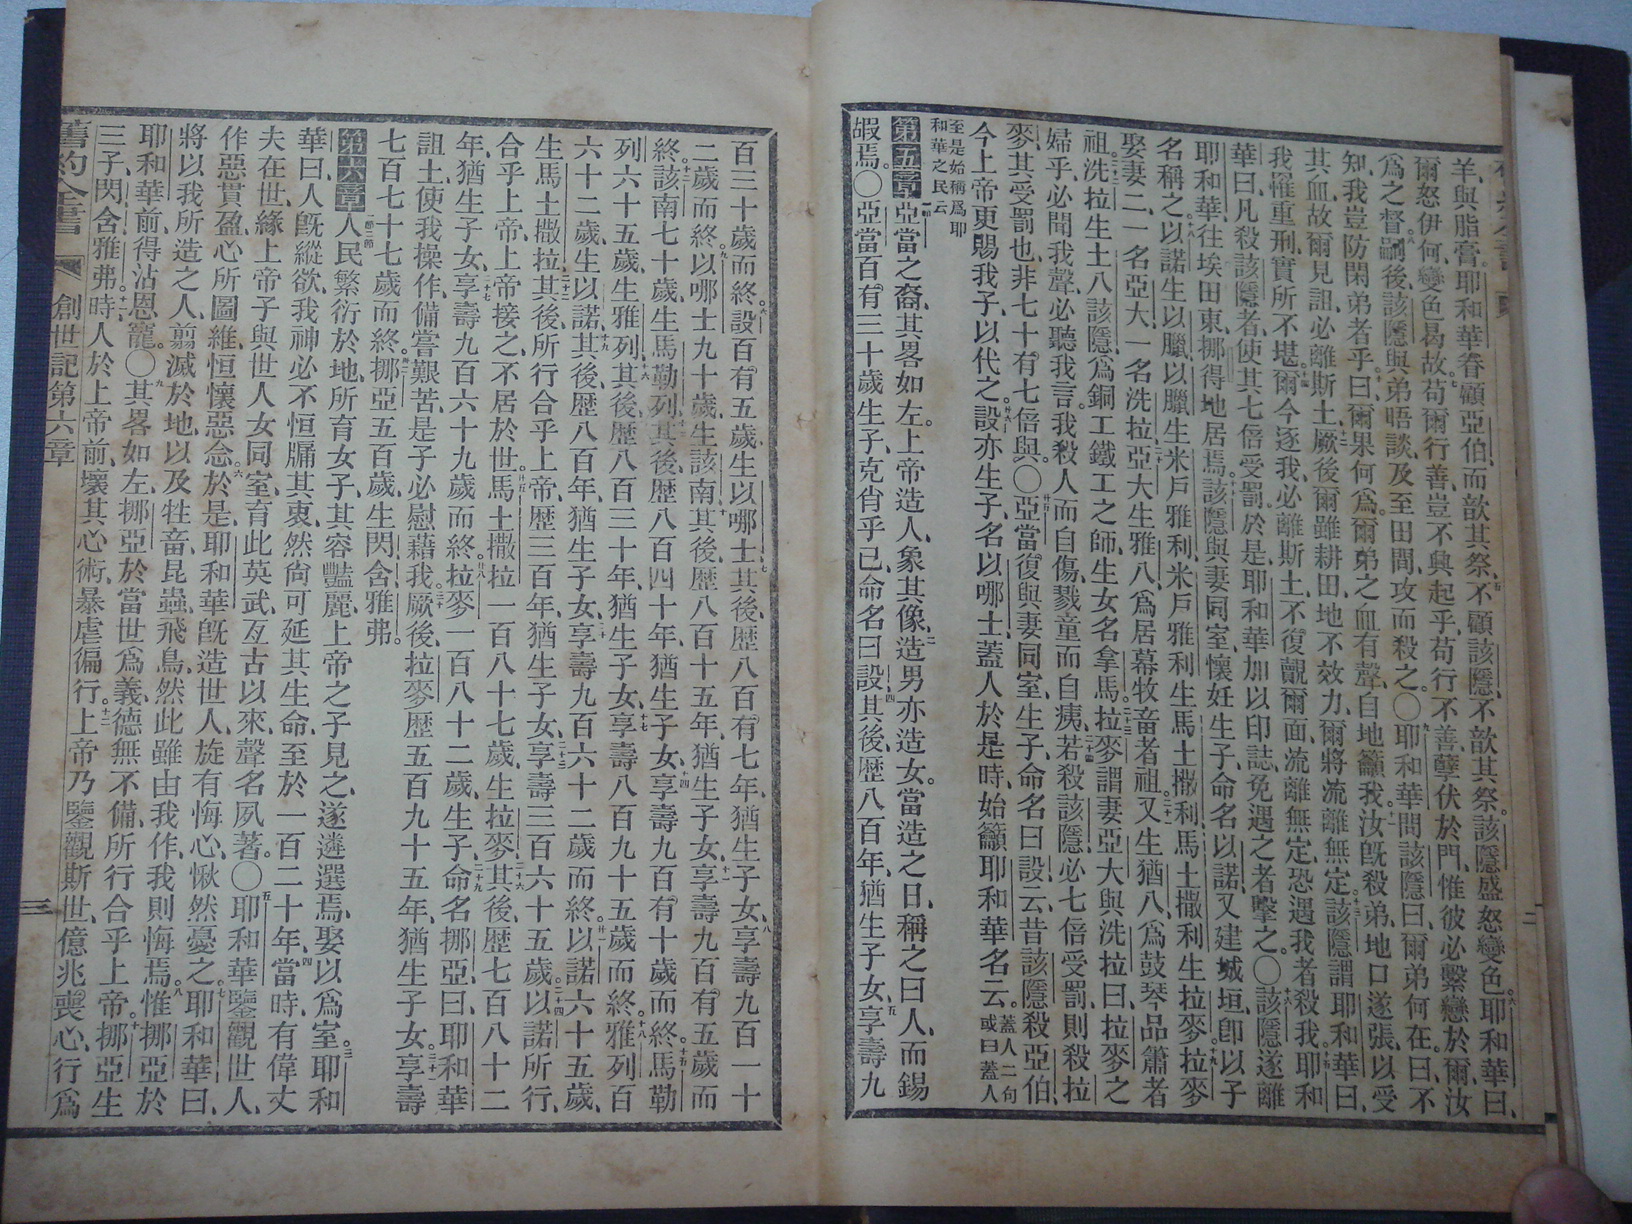 羊、與脂膏、耶和華眷顧亞伯、而歆其祭、五不顧該隱、不歆其祭。該隱盛怒變色。六耶和華曰、
爾怒伊何、變色曷故。七苟爾行善、豈不興起乎、苟行不善、孽伏於門、惟彼必繫戀於爾、汝
爲之督。八嗣後、該隱與弟晤談、及至田間、攻而殺之。〇九耶和華問該隱曰、爾弟何在、曰、不
知、我豈防閑弟者乎。十曰、爾果何爲、爾弟之血有聲、自地籲我。十一汝旣殺弟、地口遂張、以受
其血、故爾見詛、必離斯土。十二厥後爾雖耕田、地不效力、爾將流離無定。十三該隱謂耶和華曰、
我罹重刑、實所不堪。十四爾今逐我、必離斯土、不復覿爾面、流離無定、恐遇我者殺我。十五耶和
華曰、凡殺該隱者、使其七倍受罰。於是耶和華加以印誌、免遇之者擊之。〇十六該隱遂離
耶和華、往埃田東、挪得地居焉。十七該隱與妻同室、懷妊生子、命名以諾、又建城垣、卽以子
名稱之。十八以諾生以臘、以臘生米戶雅利、米戶雅利生馬土撒利、馬土撒利生拉麥。十九拉麥
娶妻二、一名亞大、一名洗拉。二十亞大生雅八、爲居幕牧畜者祖。二十一又生猶八、爲鼓琴品簫者
祖。二十二洗拉生土八該隱、爲銅工鐵工之師、生女名拿馬。二十三拉麥謂妻亞大與洗拉曰、拉麥之
婦乎、必聞我聲、必聽我言。我殺人而自傷、戮童而自痍。二十四若殺該隱、必七倍受罰、則殺拉
麥、其受罰也、非七十有七倍與。〇廿五亞當復與妻同室、生子、命名曰設、云、昔該隱殺亞伯、
今上帝更賜我子以代之。廿六設亦生子、名以哪士、蓋人於是時、始籲耶和華名云。蓋人二句或曰蓋人
至是始稱爲耶和華之民云
第五章一節亞當之裔、其畧如左。上帝造人、象其像。二造男亦造女。當造之日、稱之曰人、而錫
嘏焉。〇三亞當百有三十歲生子、克肖乎己、命名曰設。四其後、歷八百年、猶生子女。五享壽九
百三十歲而終。六設百有五歲、生以哪士。七其後、歷八百有七年、猶生子女。八享壽九百一十
二歲而終。九以哪士九十歲、生該南。十其後、歷八百十五年、猶生子女。十一享壽九百有五歲而
終。十二該南七十歲、生馬勒列。十三其後、歷八百四十年、猶生子女。十四享壽九百有十歲而終。十五馬勒
列六十五歲、生雅列。十六其後、歷八百三十年、猶生子女。十七享壽八百九十五歲而終。十八雅列百
六十二歲、生以諾。十九其後、歷八百年、猶生子女。二十享壽九百六十二歲而終。廿一以諾六十五歲、
生馬土撒拉。二十二其後所行合乎上帝、歷三百年、猶生子女。二十三享壽三百六十五歲。二十四以諾所行、
合乎上帝、上帝接之、不居於世。廿五馬土撒拉一百八十七歲、生拉麥。二十六其後、歷七百八十二
年、猶生子女。二十七享壽九百六十九歲而終。廿八拉麥一百八十二歲、生子。二十九命名挪亞、曰、耶和華
詛土、使我操作、備嘗艱苦、是子必慰藉我。三十厥後、拉麥歷五百九十五年、猶生子女。三十一享壽
七百七十七歲而終。卅二挪亞五百歲、生閃、含、雅弗。
第六章一節二節人民繁衍於地、所育女子、其容豔麗、上帝之子見之、遂遴選焉、娶以爲室。三耶和
華曰、人旣縱欲、我神必不恒牖其衷、然尙可延其生命、至於一百二十年。四當時、有偉丈
夫在世、緣上帝子與世人女同室、育此英武、亙古以來、聲名夙著。〇五耶和華鑒觀世人、
作惡貫盈、心所圖維、恒懷惡念。六於是、耶和華旣造世人、旋有悔心、愀然憂之。七耶和華曰、
將以我所造之人、翦滅於地、以及牲畜昆蟲飛鳥、然此雖由我作、我則悔焉。八惟挪亞於
耶和華前、得沾恩寵。〇九其畧如左、挪亞於當世爲義、德無不備、所行合乎上帝。十挪亞生
三子、閃、含、雅弗。十一時、人於上帝前、壞其心術、暴虐徧行。十二上帝乃鑒觀斯世、億兆喪心、行爲
舊約全書 創世記第六章 三